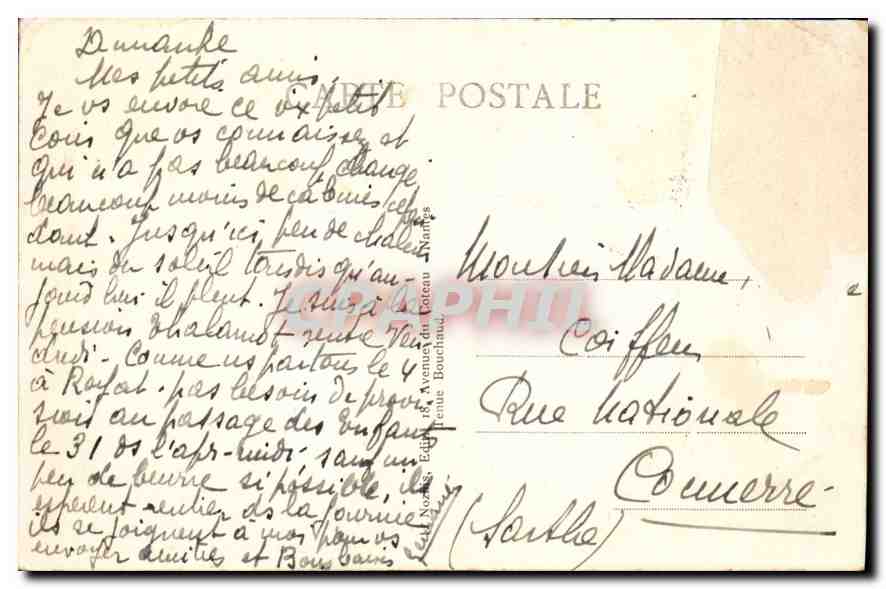 Dimanche
Mes petits amis,
CARTE POSTALE
Je vs envoie ce vx petit
coin que vs connaissez et
qui n'a pas beaucoup changé
beaucoup moins de cabines cepen
dant. Jusqu'ici peu de chaleur
mais du soleil tandis qu'au-
jourd'hui il pleut. Je suis à la
pension Thalamot rentre Ven
dredi - Comme ns partons le 4
à Royat. pas besoin de provi
sions au passage des Enfants
le 31 ds l'apr-midi, sauf un
peu de beurre si possible, ils
espèrent rentrer ds la journée
ils se joignent à moi pour vs
envoyer amitiés et Bons baisers
Nozais, Edit., 18, Avenue du Coteau - Nantes
Tenue Bouchaud
CPAPHIL
Monsieur Madame,
Coiffeur
Rue Nationale
Connerré
(Sarthe)